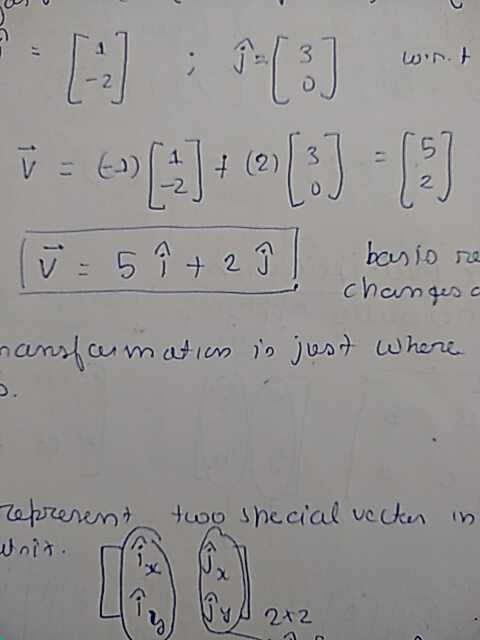 î = [1 -2] ; ĵ = [3 0] w.r.t
v⃗ = (-1) [1 -2] + (2) [3 0] = [5 2]
v⃗ = 5 î + 2 ĵ
basis
changes
transformation is just where
represent two special vector in
unit.
[îx ĵx
îy ĵy] 2×2